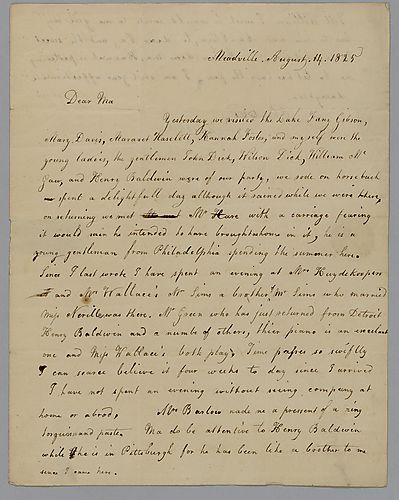 Meadville. August. 14. 1825
Dear Ma
Yesterday we visited the Lake Fany Gibson,
Mary Davis, Margaret Haselett, Hannah Foster, and myself were the
young ladies, the gentlemen John Dick, Wilson Dick, William Mc
Gaw, and Henry Baldwin were of our party, we rode on horseback
spent a delightfull day although it rained while we were there,
on returning we met Mr Hare with a carriage fearing
it would rain he intended to have brought us home in it, he is a
young gentleman from Philadelphia spending the summer here.
Since I last wrote I have spent an evening at Mrs Huydekoopers
and Mrs Wallace's Mr Sims a brother Mr Sims who married
Miss Norella was there. Mr Green who has just returned from Detroit
Henry Baldwin and a number of others, thier piano is an excelant
one and Miss Wallace's both play, Time passes so swiftly
I can scarce believe it four weeks to day since I arrived
I have not spent an evening without seeing company at
home or abroad, Mrs Barlow made me a present of a ring
torquis and paste. Ma do be attentive to Henry Baldwin
while he is in Pittsburgh for he has been like a brother to me
since I came here.